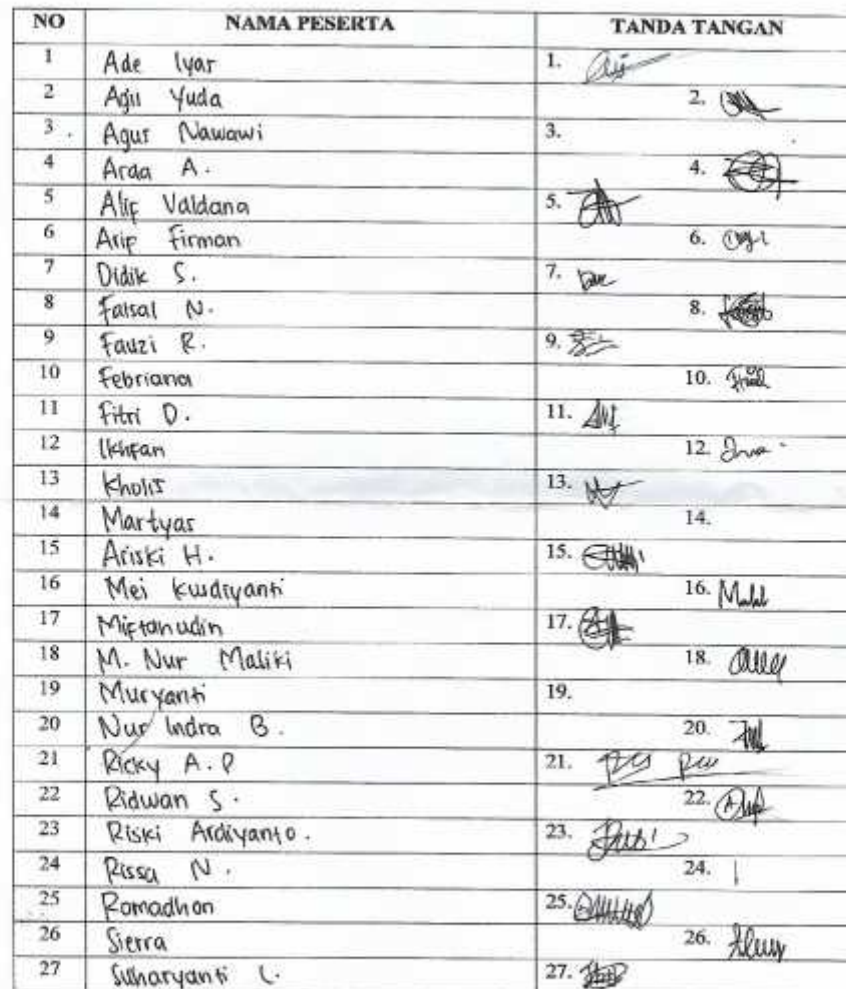 NO NAMA PESERTA TANDA TANGAN
1 Ade Iyar 1.
2 Agil Yuda 2.
3 Agus Nawawi 3.
4 Arda A. 4.
5 Alif Valdana 5.
6 Arif Firman 6.
7 Didik S. 7.
8 Faisal N. 8.
9 Fauzi R. 9.
10 Febriana 10.
11 Fitri D. 11.
12 Ikhfan 12.
13 Kholis 13.
14 Martyas 14.
15 Ariski H. 15.
16 Mei Kusdiyanti 16.
17 Miftahudin 17.
18 M. Nur Maliki 18.
19 Muryanti 19.
20 Nur Indra B. 20.
21 Ricky A.P 21.
22 Ridwan S. 22.
23 Riski Ardiyanto. 23.
24 Rissa N. 24.
25 Romadhon 25.
26 Sierra 26.
27 Suharyanti L. 27.